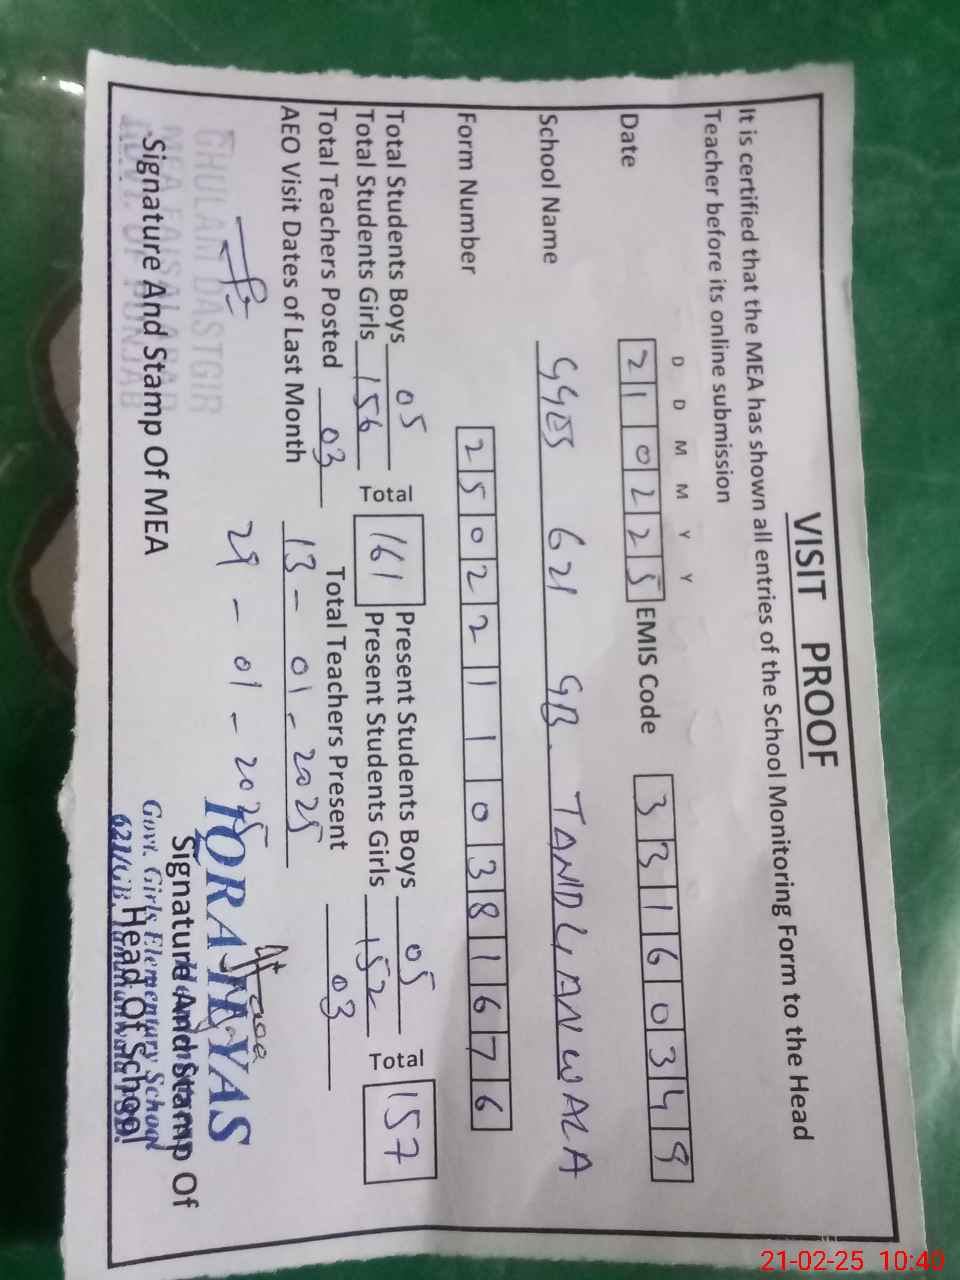 VISIT PROOF
It is certified that the MEA has shown all entries of the School Monitoring Form to the Head
Teacher before its online submission
D D M M Y Y
Date 210225 EMIS Code 33160349
School Name GGES 621 GB. TANDLANWALA
Form Number 25022110381676
Total Students Boys 05 Present Students Boys 05
Total Students Girls 156 Total 161 Present Students Girls 152 Total 157
Total Teachers Posted 03 Total Teachers Present 03
AEO Visit Dates of Last Month 13-01-2025
29-01-2025
GHULAM DASTGIR
MEA FAISALABAD
GOVT. OF PUNJAB
Signature And Stamp Of MEA
IQRA ILYAS
Govt. Girls Elementary School
621/GB.
Signature And Stamp Of
Head Of School
21-02-25 10:40